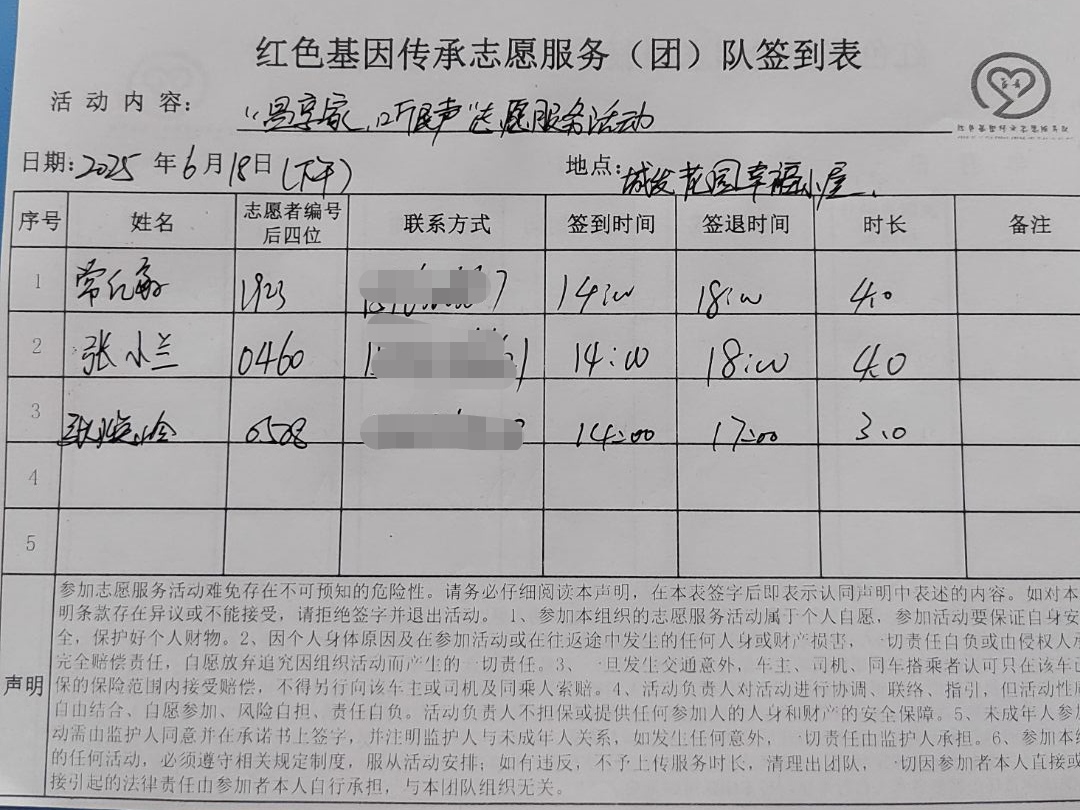 红色基因传承志愿服务（团）队签到表
活动内容：“昌享家，听民声”志愿服务活动
日期:2025年6月18日(下午) 地点:城发花园幸福小屋.
序号 姓名 志愿者编号后四位 联系方式 签到时间 签退时间 时长 备注
1 1923 14:00 18:00 4.0
2 张小兰 0460 14:00 18:00 4.0
3 0508 14:00 17:00 3.0
4
5
声明
参加志愿服务活动难免存在不可预知的危险性。请务必仔细阅读本声明，在本表签字后即表示认同声明中表述的内容。如对本
明条款存在异议或不能接受，请拒绝签字并退出活动。 1、参加本组织的志愿服务活动属于个人自愿，参加活动要保证自身安
全，保护好个人财物。2、因个人身体原因及在参加活动或在往返途中发生的任何人身或财产损害，一切责任自负或由侵权人承
完全赔偿责任，自愿放弃追究因组织活动而产生的一切责任。3、一旦发生交通意外，车主、司机、同车搭乘者认可只在该车
保的保险范围内接受赔偿，不得另行向该车主或司机及同乘人索赔。4、活动负责人对活动进行协调、联络、指引，但活动性
自由结合、自愿参加、风险自担、责任自负。活动负责人不担保或提供任何参加人的人身和财产的安全保障。5、未成年人参
动需由监护人同意并在承诺书上签字，并注明监护人与未成年人关系，如发生任何意外，一切责任由监护人承担。6、参加本
的任何活动，必须遵守相关规定制度，服从活动安排；如有违反，不予上传服务时长，清理出团队，一切因参加者本人直接或
接引起的法律责任由参加者本人自行承担，与本团队组织无关。